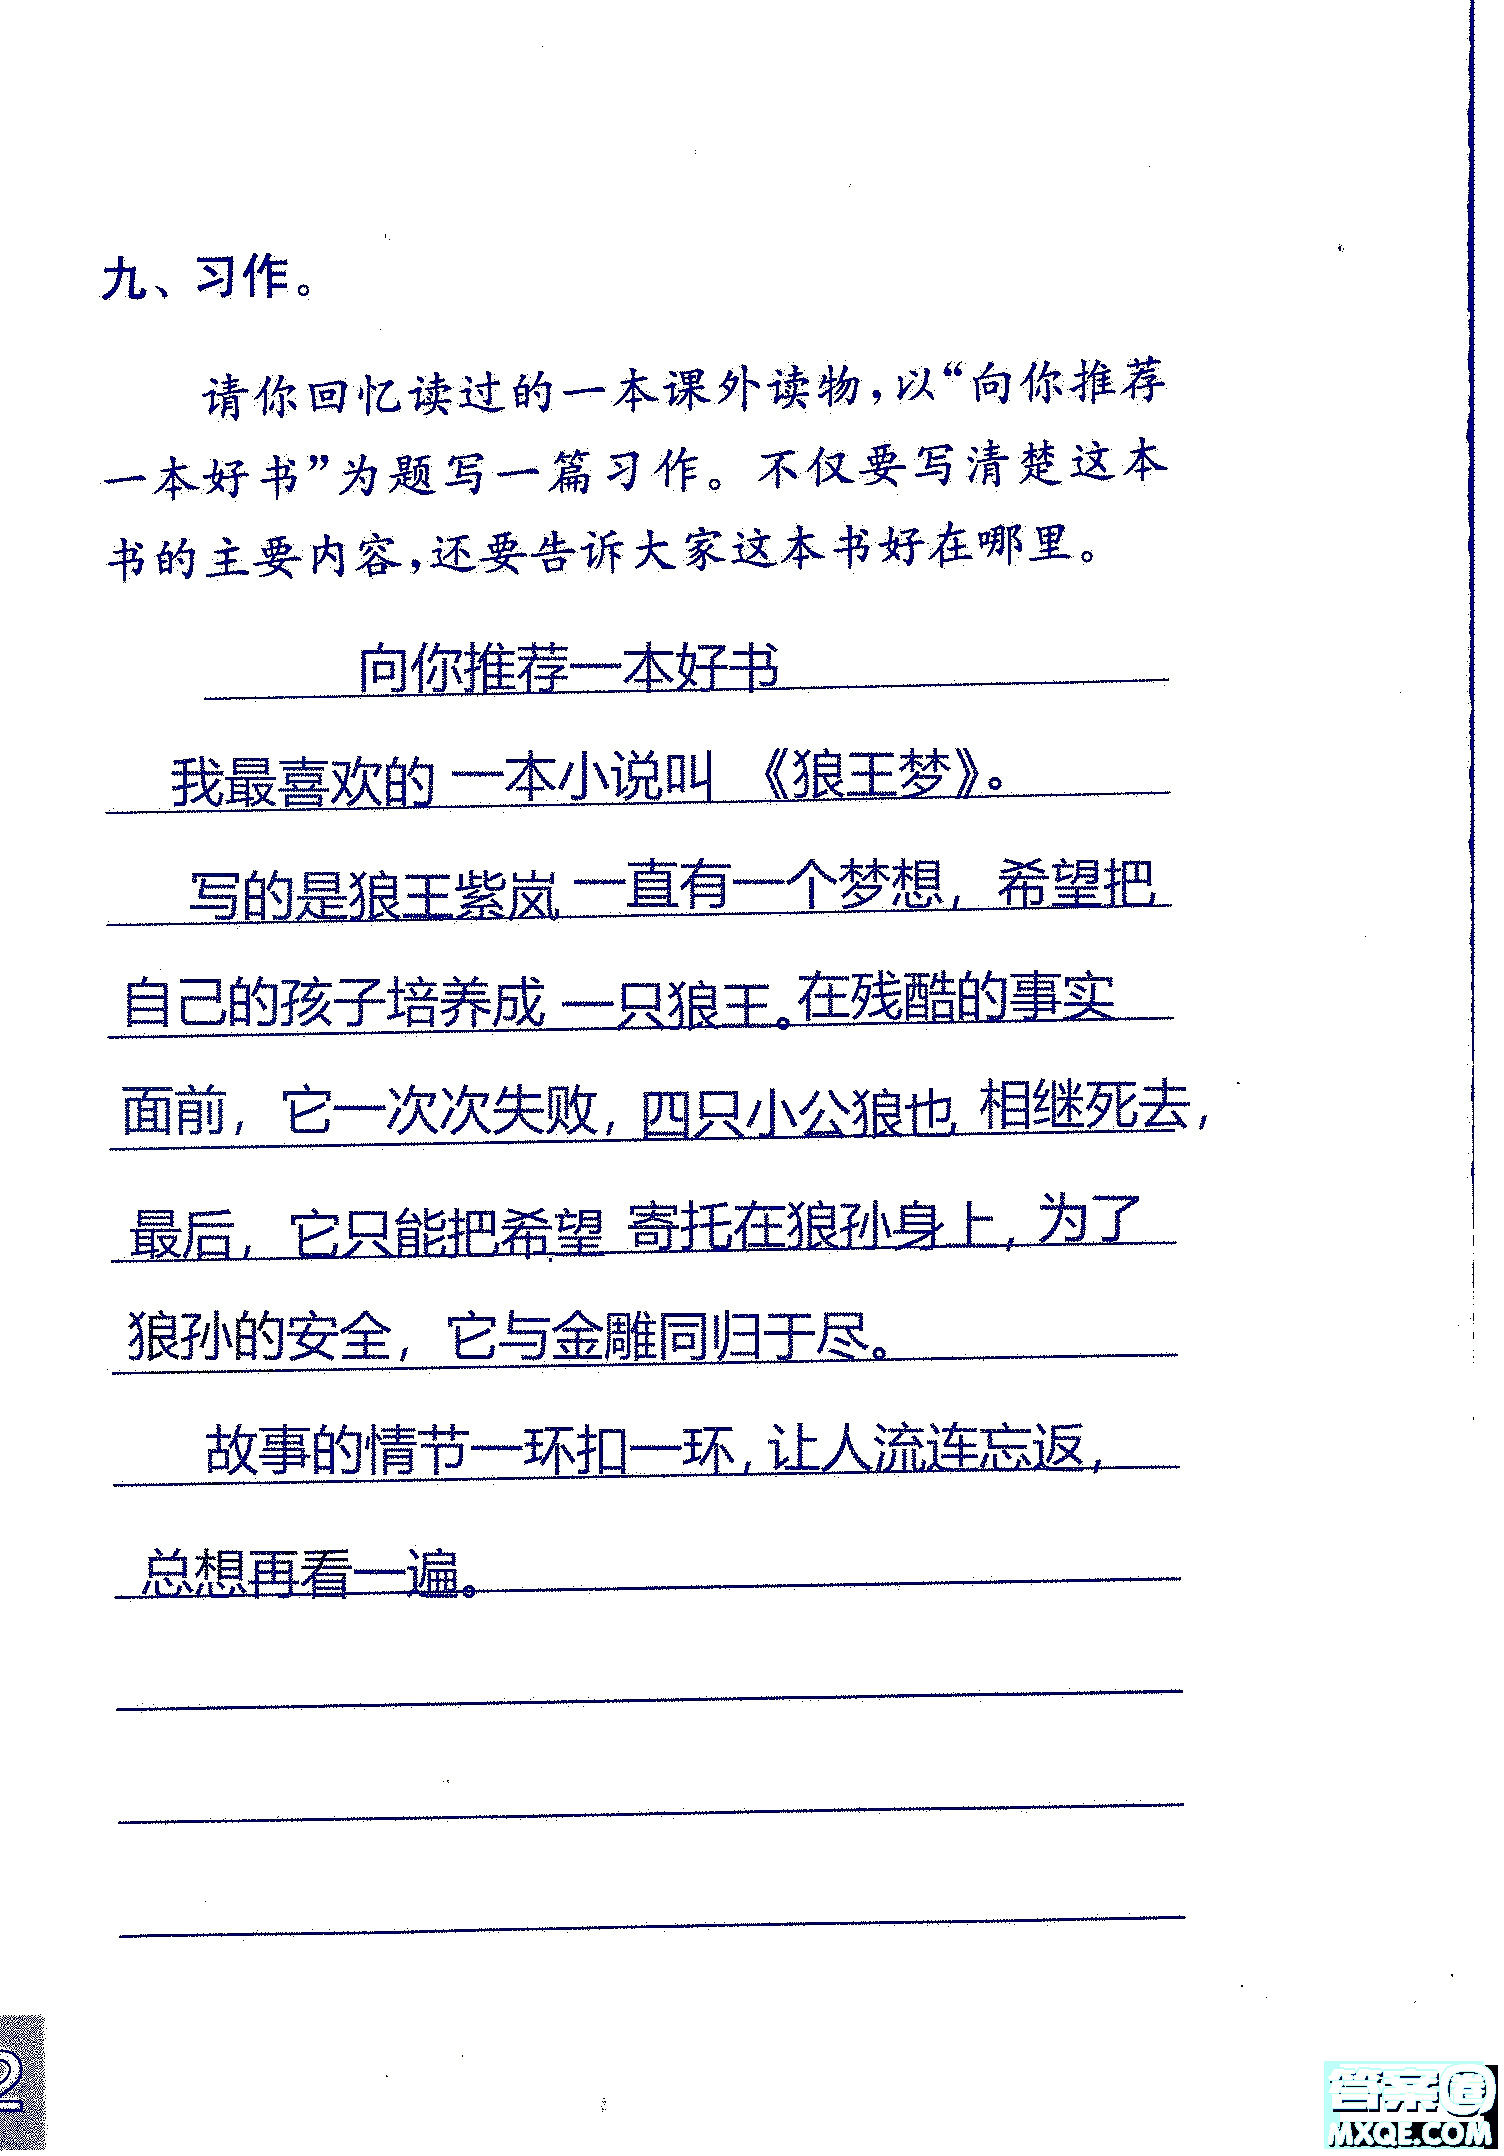 九、习作。
请你回忆读过的一本课外读物,以“向你推荐
一本好书”为题写一篇习作。不仅要写清楚这本
书的主要内容,还要告诉大家这本书好在哪里。
向你推荐一本好书
我最喜欢的一本小说叫 《狼王梦》。
写的是狼王紫岚一直有一个梦想，希望把
自己的孩子培养成一只狼王。在残酷的事实
面前，它一次次失败，四只小公狼也相继死去，
最后，它只能把希望寄托在狼孙身上，为了
狼孙的安全，它与金雕同归于尽。
故事的情节一环扣一环，让人流连忘返，
总想再看一遍。
2
答案圈
MXQE.COM